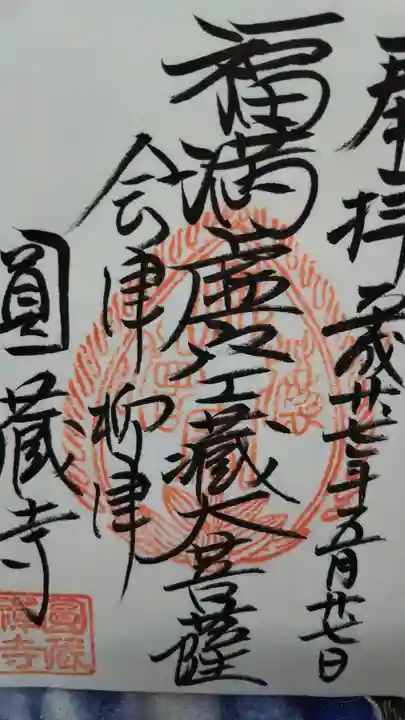 奉拝 平成廿七年五月廿七日
福満虚空藏大菩薩
会津柳津
圓蔵寺
圓蔵
禅寺